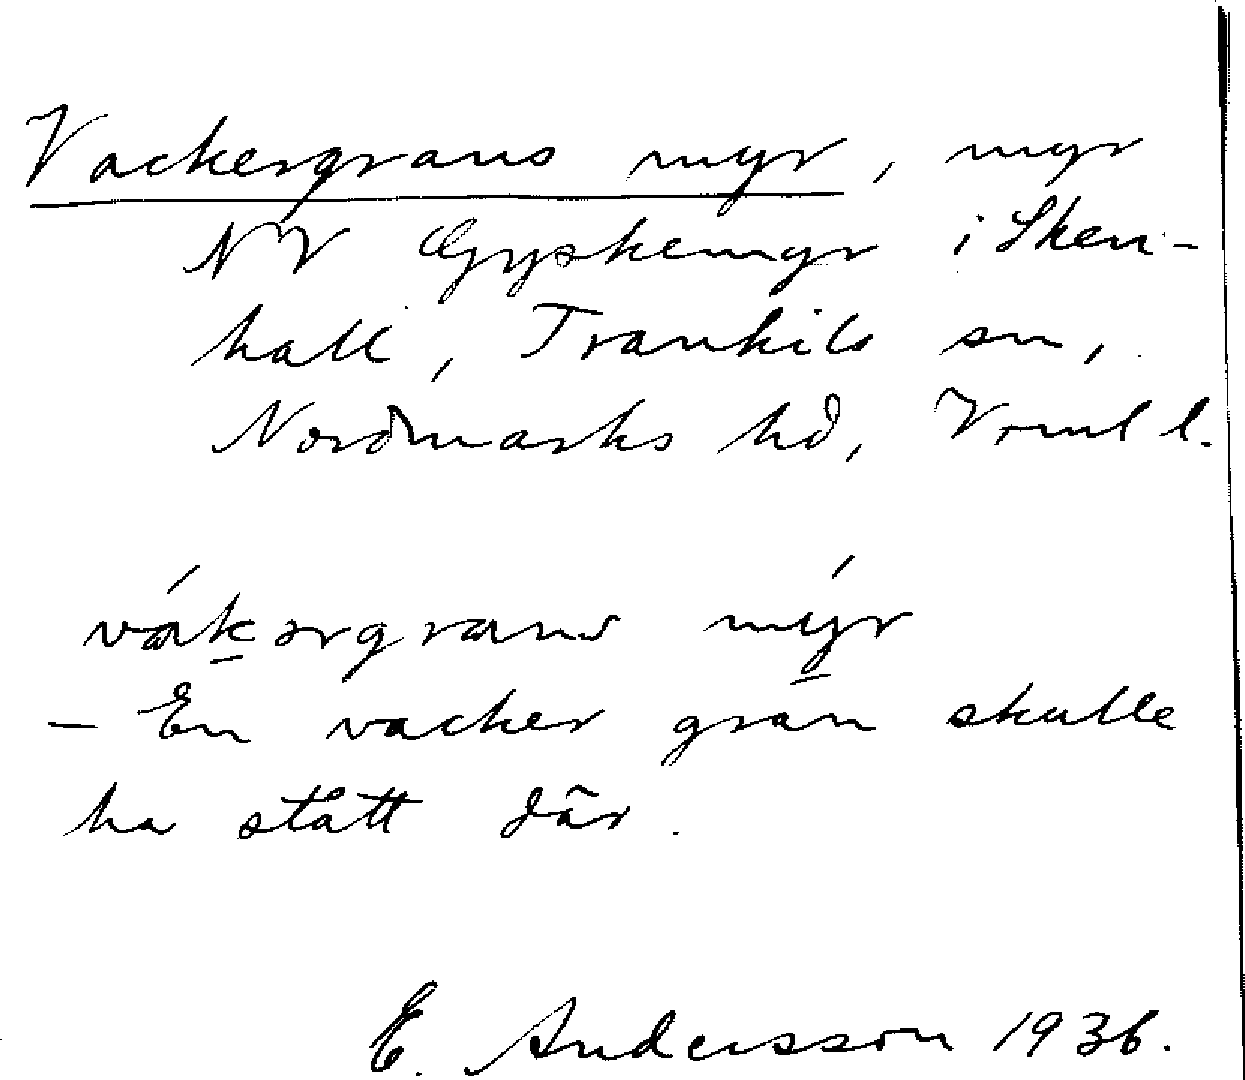 Vackergrans myr, myr
NV Gyskemyr i Sken-
hall, Trankils sn,
Nordmarks hd, Vrml l.
våkərgrans myr
– En vacker gran skulle
ha stått där.
E. Andersson 1936.